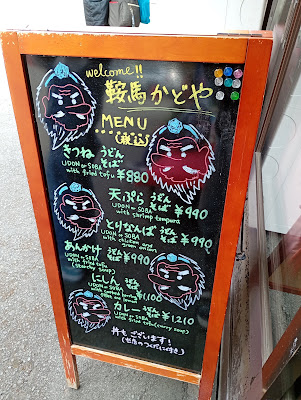 welcome!!
鞍馬かどや
MENU
(税込)
きつね うどん そば
UDON or SOBA
with fried tofu ¥880
天ぷら うどん そば ¥990
UDON or SOBA
with shrimp tempura
とりなんば うどん そば ¥990
UDON or SOBA
with chicken and
green onion
あんかけ うどん そば ¥990
UDON or SOBA
with fried tofu
(starchy soup)
にしん うどん そば ¥1,100
UDON or SOBA
カレー うどん そば ¥1,210
UDON or SOBA
with fried tofu (curry soup)
丼もございます!